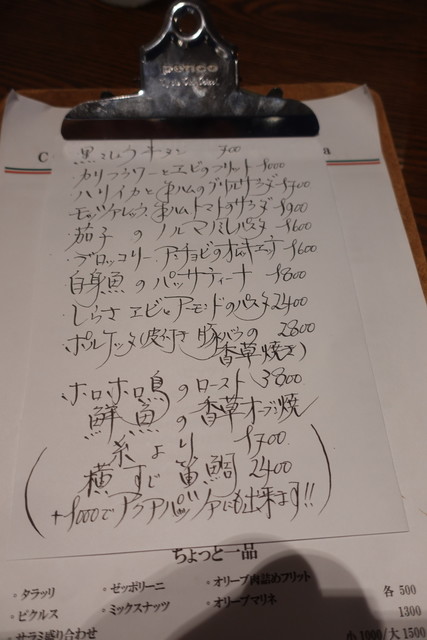 PENCO
C
a
700
・カリフラワーとエビのフリット 1000
ハリイカと生ハムのサラダ 1700
モッツァレッラ、生ハム、トマトのサラダ 1900
茄子のノルマ風パスタ 1600
・ブロッコリーアンチョビのオレキエッテ 1600
白身魚のパッサティーナ 1800
しらさエビとアーモンドのパスタ 2400
ポルケッタ(皮付き豚バラの 2800
香草焼き)
ホロホロ鳥のロースト 3800
鮮魚の香草オーブン焼
糸より 1700
横すじ 鯛 2400
+1000でアクアパッツァにも出来ます!!
ちょっと一品
・タラッリ ・ゼッポリーニ ・オリーブ肉詰めフリット 各 500
・ピクルス ・ミックスナッツ ・オリーブマリネ 1300
サラミ盛り合わせ 小 1000/大 1500